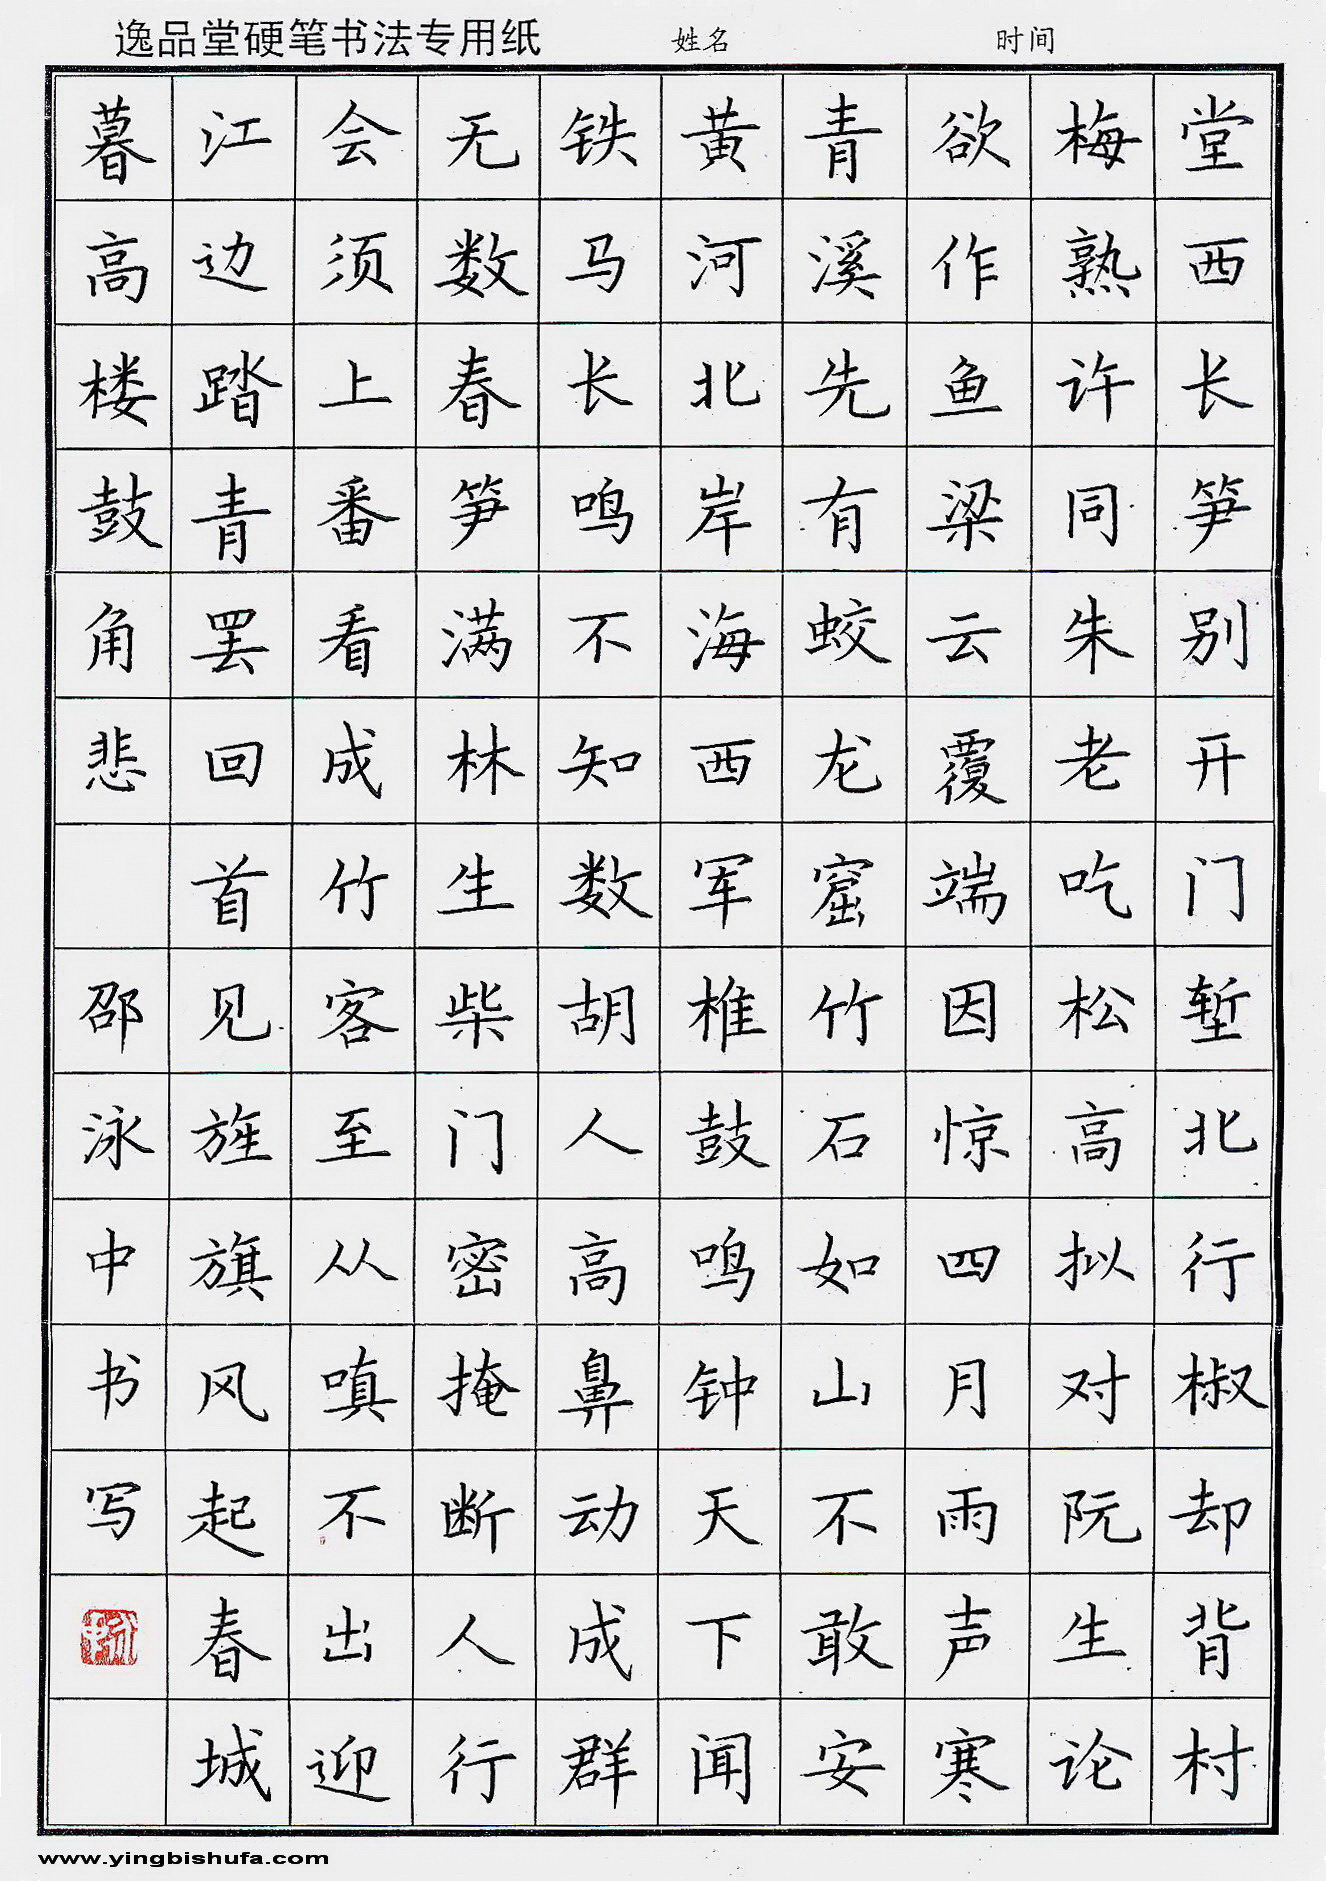 逸品堂硬笔书法专用纸 姓名 时间
堂西长笋别开门堑北行椒却背村
梅熟许同朱老吃松高拟对阮生论
欲作鱼梁云覆端因惊四月雨声寒
青溪先有蛟龙窟竹石如山不敢安
黄河北岸海西军椎鼓鸣钟天下闻
铁马长鸣不知数胡人高鼻动成群
无数春笋满林生柴门密掩断人行
会须上番看成竹客至从嗔不出迎
江边踏青罢回首见旌旗风起春城
暮高楼鼓角悲 邵泳中书写
www.yingbishufa.com